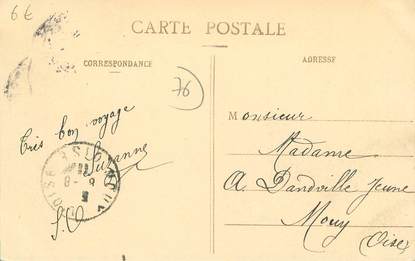 6€
CARTE POSTALE
CORRESPONDANCE
ADRESSE
76
Très bon voyage
Suzanne
Monsieur
Madame
A. Dandville Jeune
Mouy
(Oise)
OISE